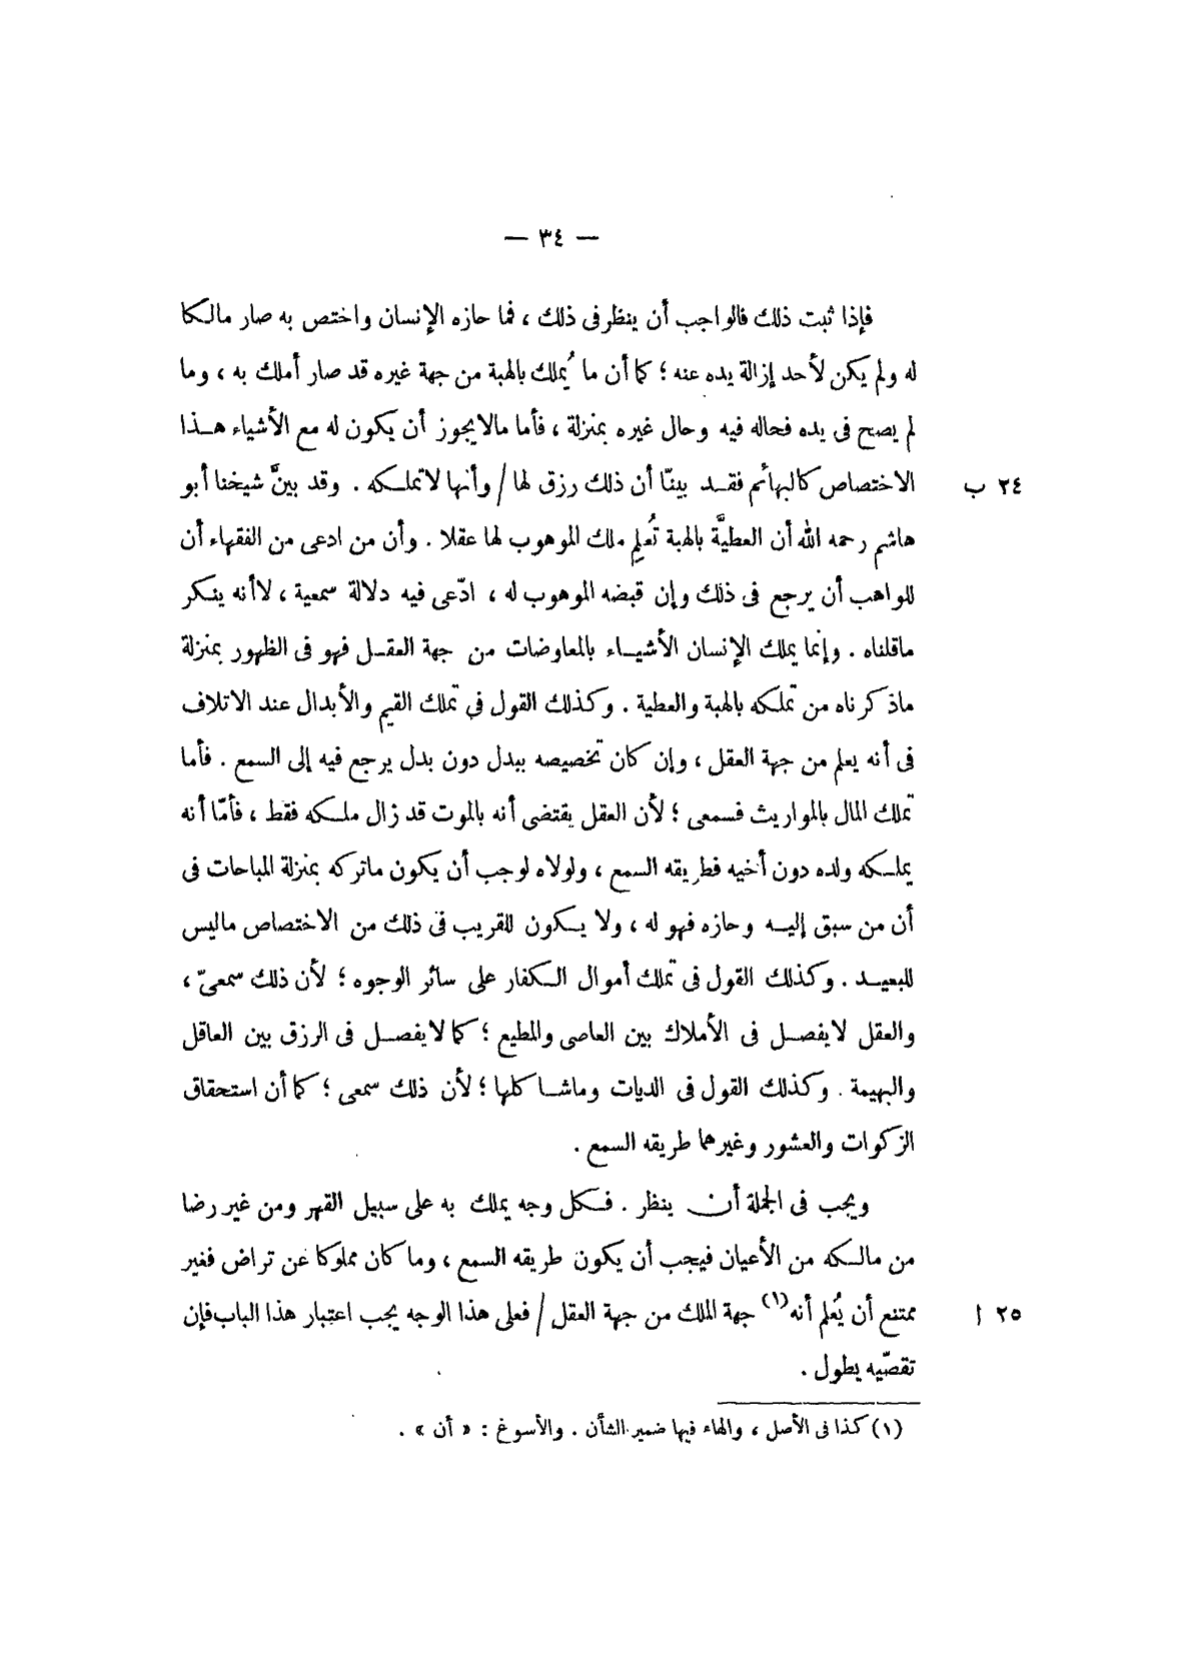 — ٣٤ —
فإذا ثبت ذلك فالواجب أن ينظر فى ذلك ، فما حازه الإنسان واختص به صار مالكا
له ولم يكن لأحد إزالة يده عنه ؛ كما أن ما يُملك بالهبة من جهة غيره قد صار أملك به ، وما
لم يصح فى يده فحاله فيه وحال غيره بمنزلة ، فأما مالايجوز أن يكون له مع الأشياء هذا
الاختصاص كالبهائم فقد بينّا أن ذلك رزق لها / وأنها لاتملكه . وقد بينَّ شيخنا أبو ٢٤ ب
هاشم رحمه الله أن العطيَّة بالهبة تُعلِم ملك الموهوب لها عقلا . وأن من ادعى من الفقهاء أن
للواهب أن يرجع فى ذلك وإن قبضه الموهوب له ، ادّعى فيه دلالة سمعية ، لاأنه ينكر
ماقلناه . وإنما يملك الإنسان الأشياء بالمعاوضات من جهة العقل فهو فى الظهور بمنزلة
ماذكرناه من تملكه بالهبة والعطية . وكذلك القول فى تملك القيم والأبدال عند الاتلاف
فى أنه يعلم من جهة العقل ، وإن كان تخصيصه ببدل دون بدل يرجع فيه إلى السمع . فأما
تملك المال بالمواريث فسمعى ؛ لأن العقل يقتضى أنه بالموت قد زال ملكه فقط ، فأمّا أنه
يملكه ولده دون أخيه فطريقه السمع ، ولولاه لوجب أن يكون ماتركه بمنزلة المباحات فى
أن من سبق إليه وحازه فهو له ، ولا يكون للقريب فى ذلك من الاختصاص ماليس
للبعيد . وكذلك القول فى تملك أموال الكفار على سائر الوجوه ؛ لأن ذلك سمعىّ ،
والعقل لايفصل فى الأملاك بين العاصى والمطيع ؛ كما لايفصل فى الرزق بين العاقل
والبهيمة . وكذلك القول فى الديات وماشاكلها ؛ لأن ذلك سمعى ؛ كما أن استحقاق
الزكوات والعشور وغيرهما طريقه السمع .
ويجب فى الجملة أن ينظر . فكل وجه يملك به على سبيل القهر ومن غير رضا
من مالكه من الأعيان فيجب أن يكون طريقه السمع ، وما كان مملوكا عن تراض فغير
ممتنع أن يُعلم أنه(١) جهة الملك من جهة العقل / فعلى هذا الوجه يجب اعتبار هذا الباب فإن ٢٥ ا
تقصّيه يطول .
(١) كذا فى الأصل ، والهاء فيها ضمير الشأن . والأسوغ : « أن » .